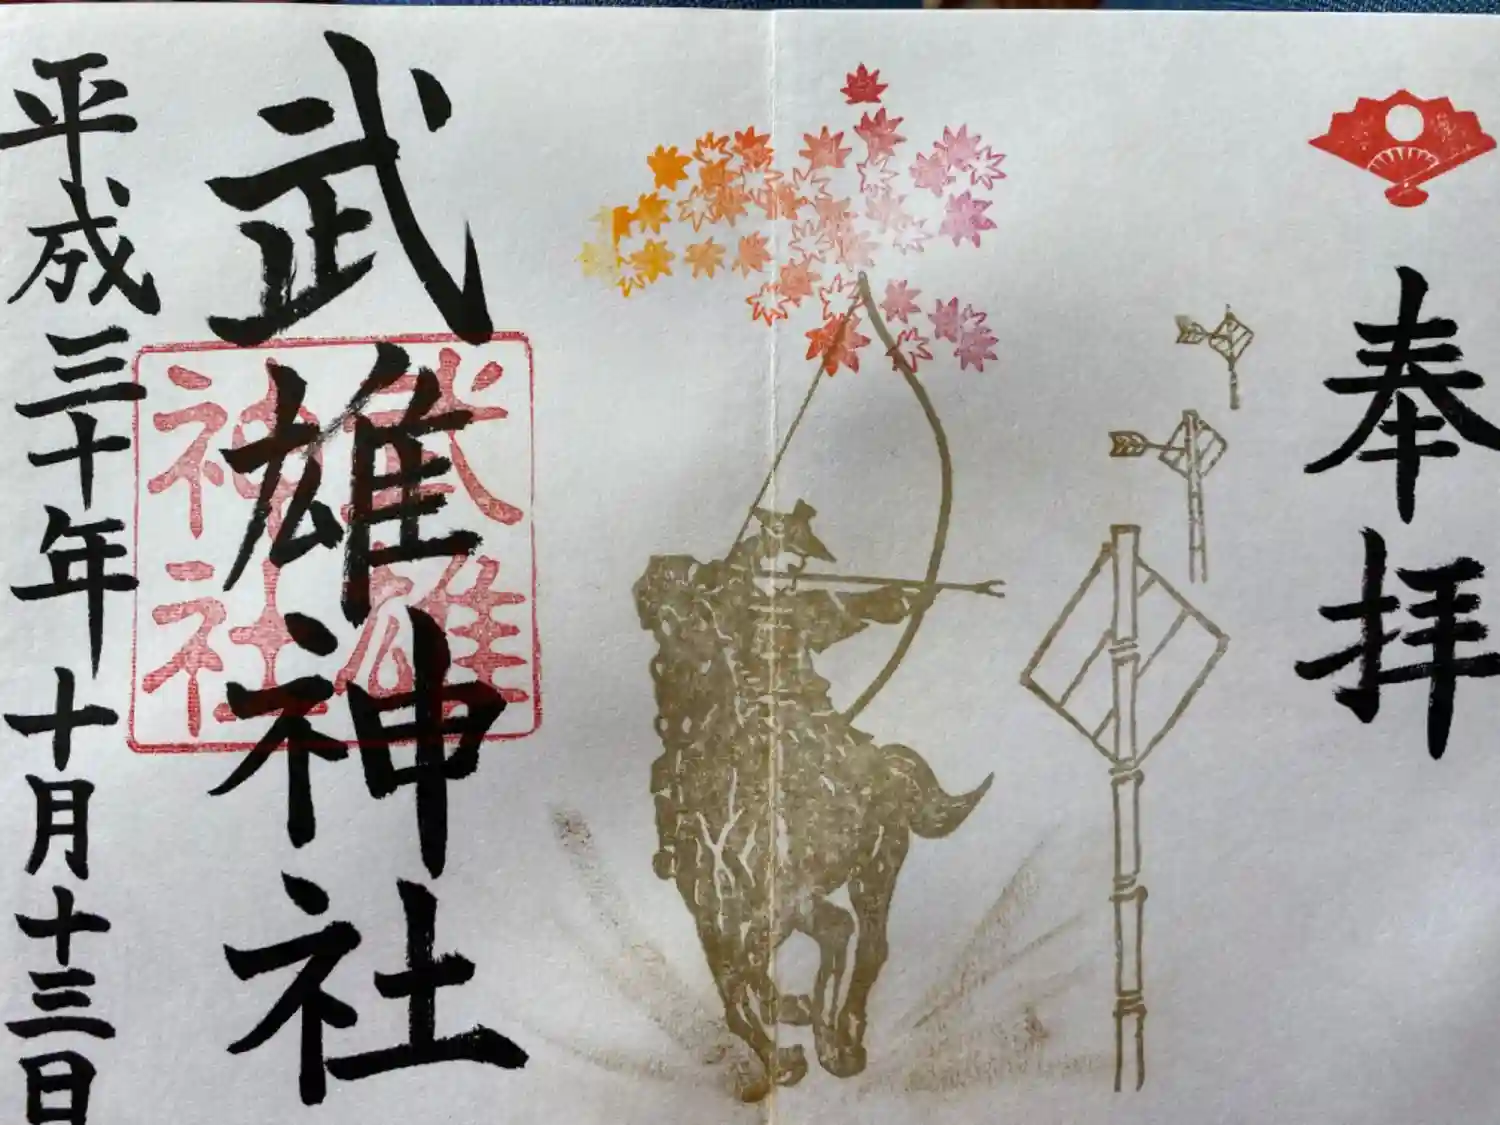 奉拝
武雄神社
武雄
神社
平成三十年十月十三日